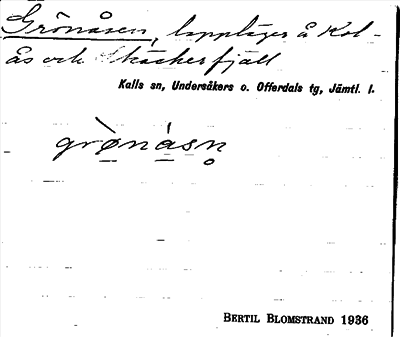 Grönåsen, lappläger å Kol-
ås och Skäckerfjäll
Kalls sn, Undersåkers o. Offerdals tg, Jämtl. l.
grò̱ná̱sn̥
BERTIL BLOMSTRAND 1936